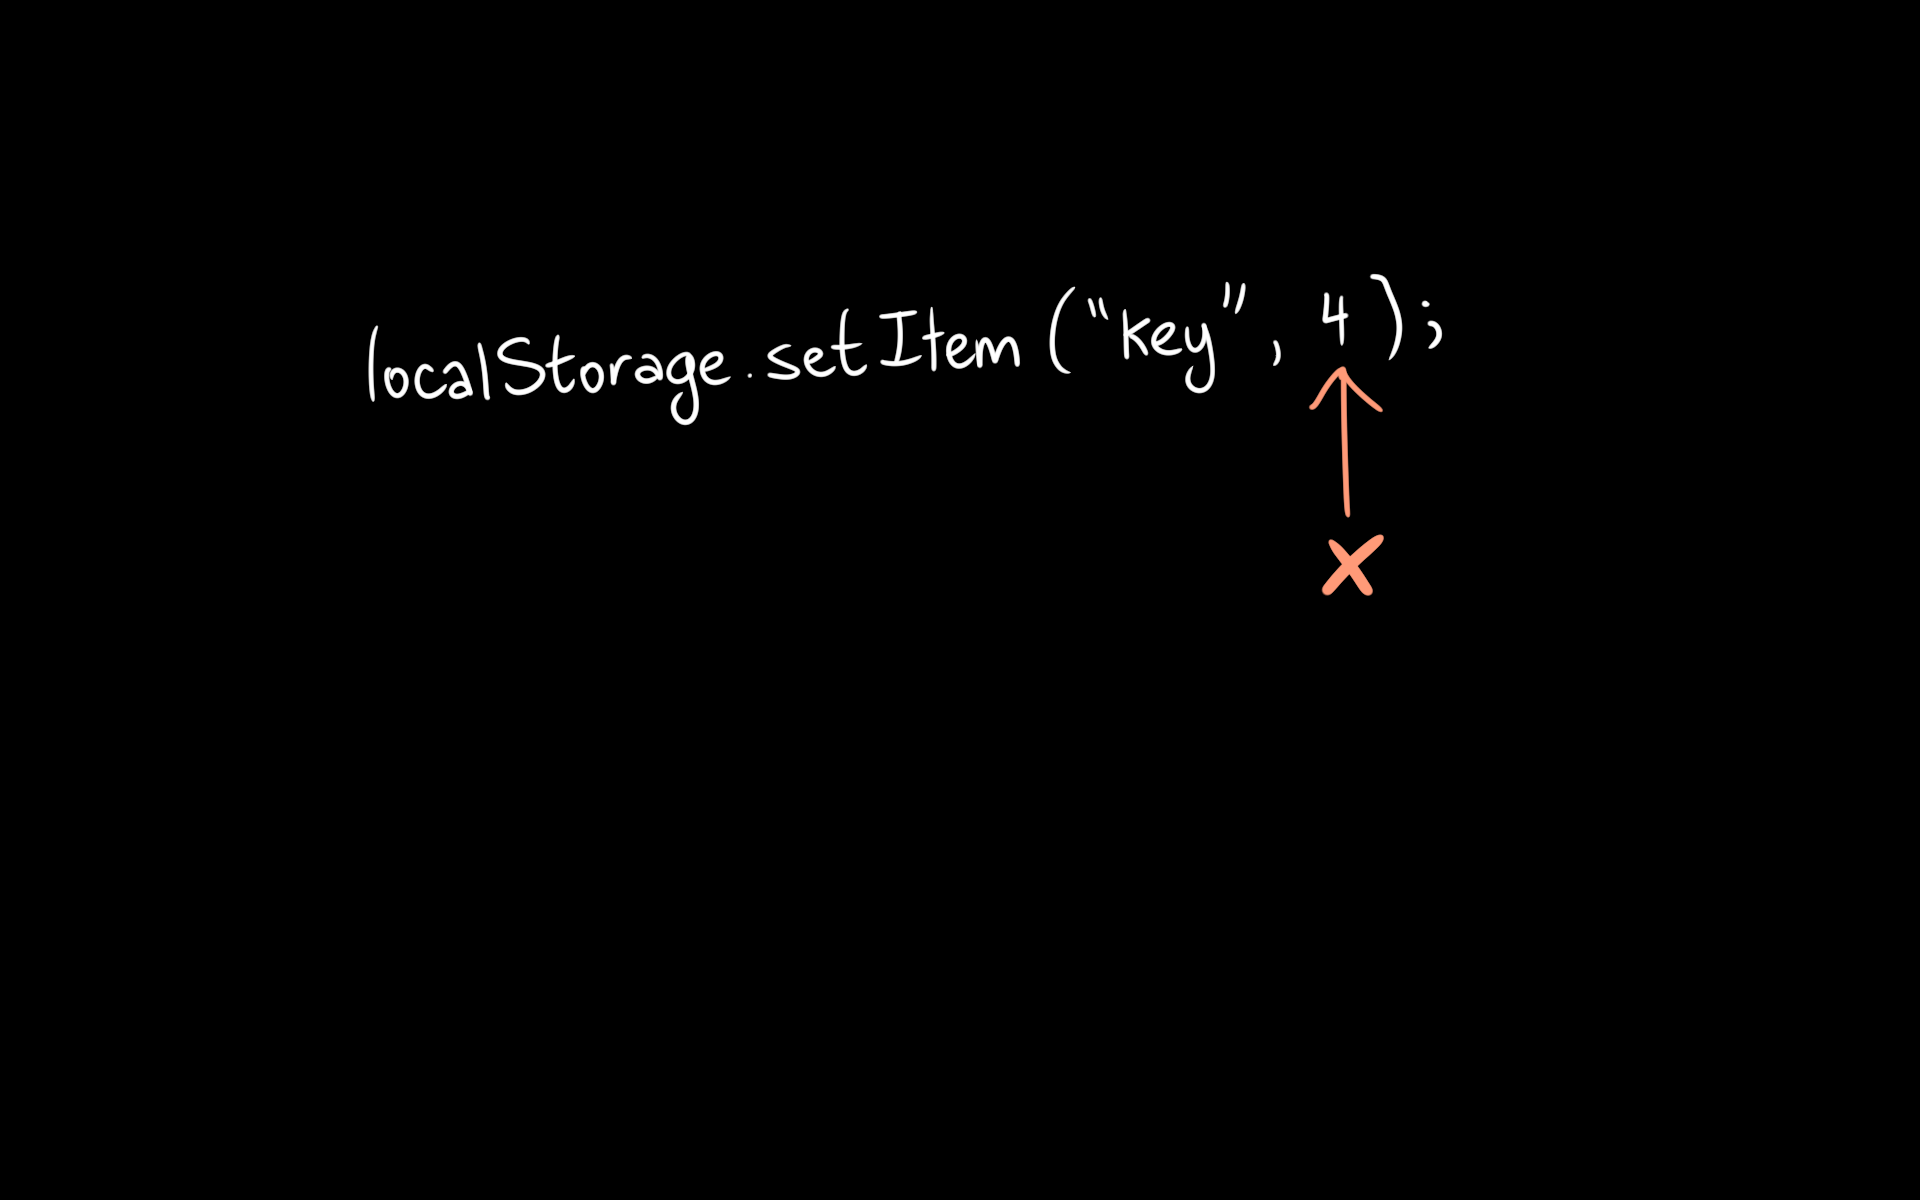 localStorage.setItem("key", 4);